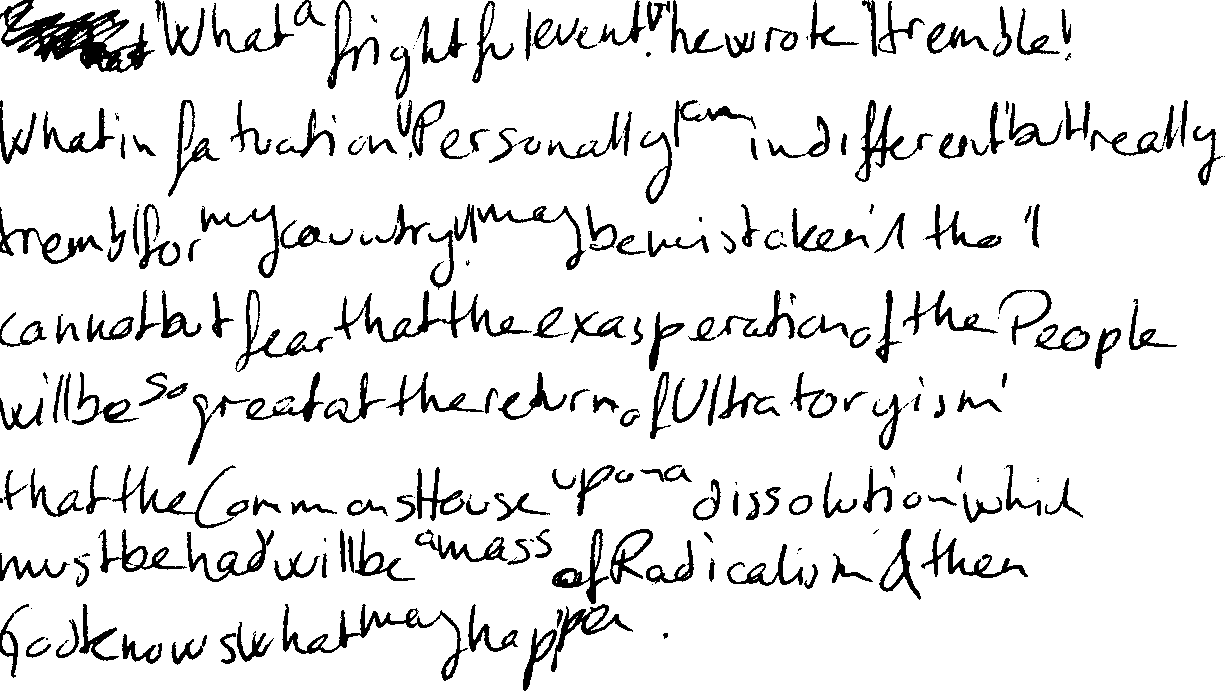 "What a frightful event!" he wrote "I tremble!
What infatuation! Personally I am indifferent but I really
trembl for my country! I may be mistaken, tho' I
cannot but fear that the exasperation of the People
will be so great at the return of Ultra toryism,
that the Commons House upon a dissolution, which
must be had, will be a mass of Radicalism & then
God knows what may happen.